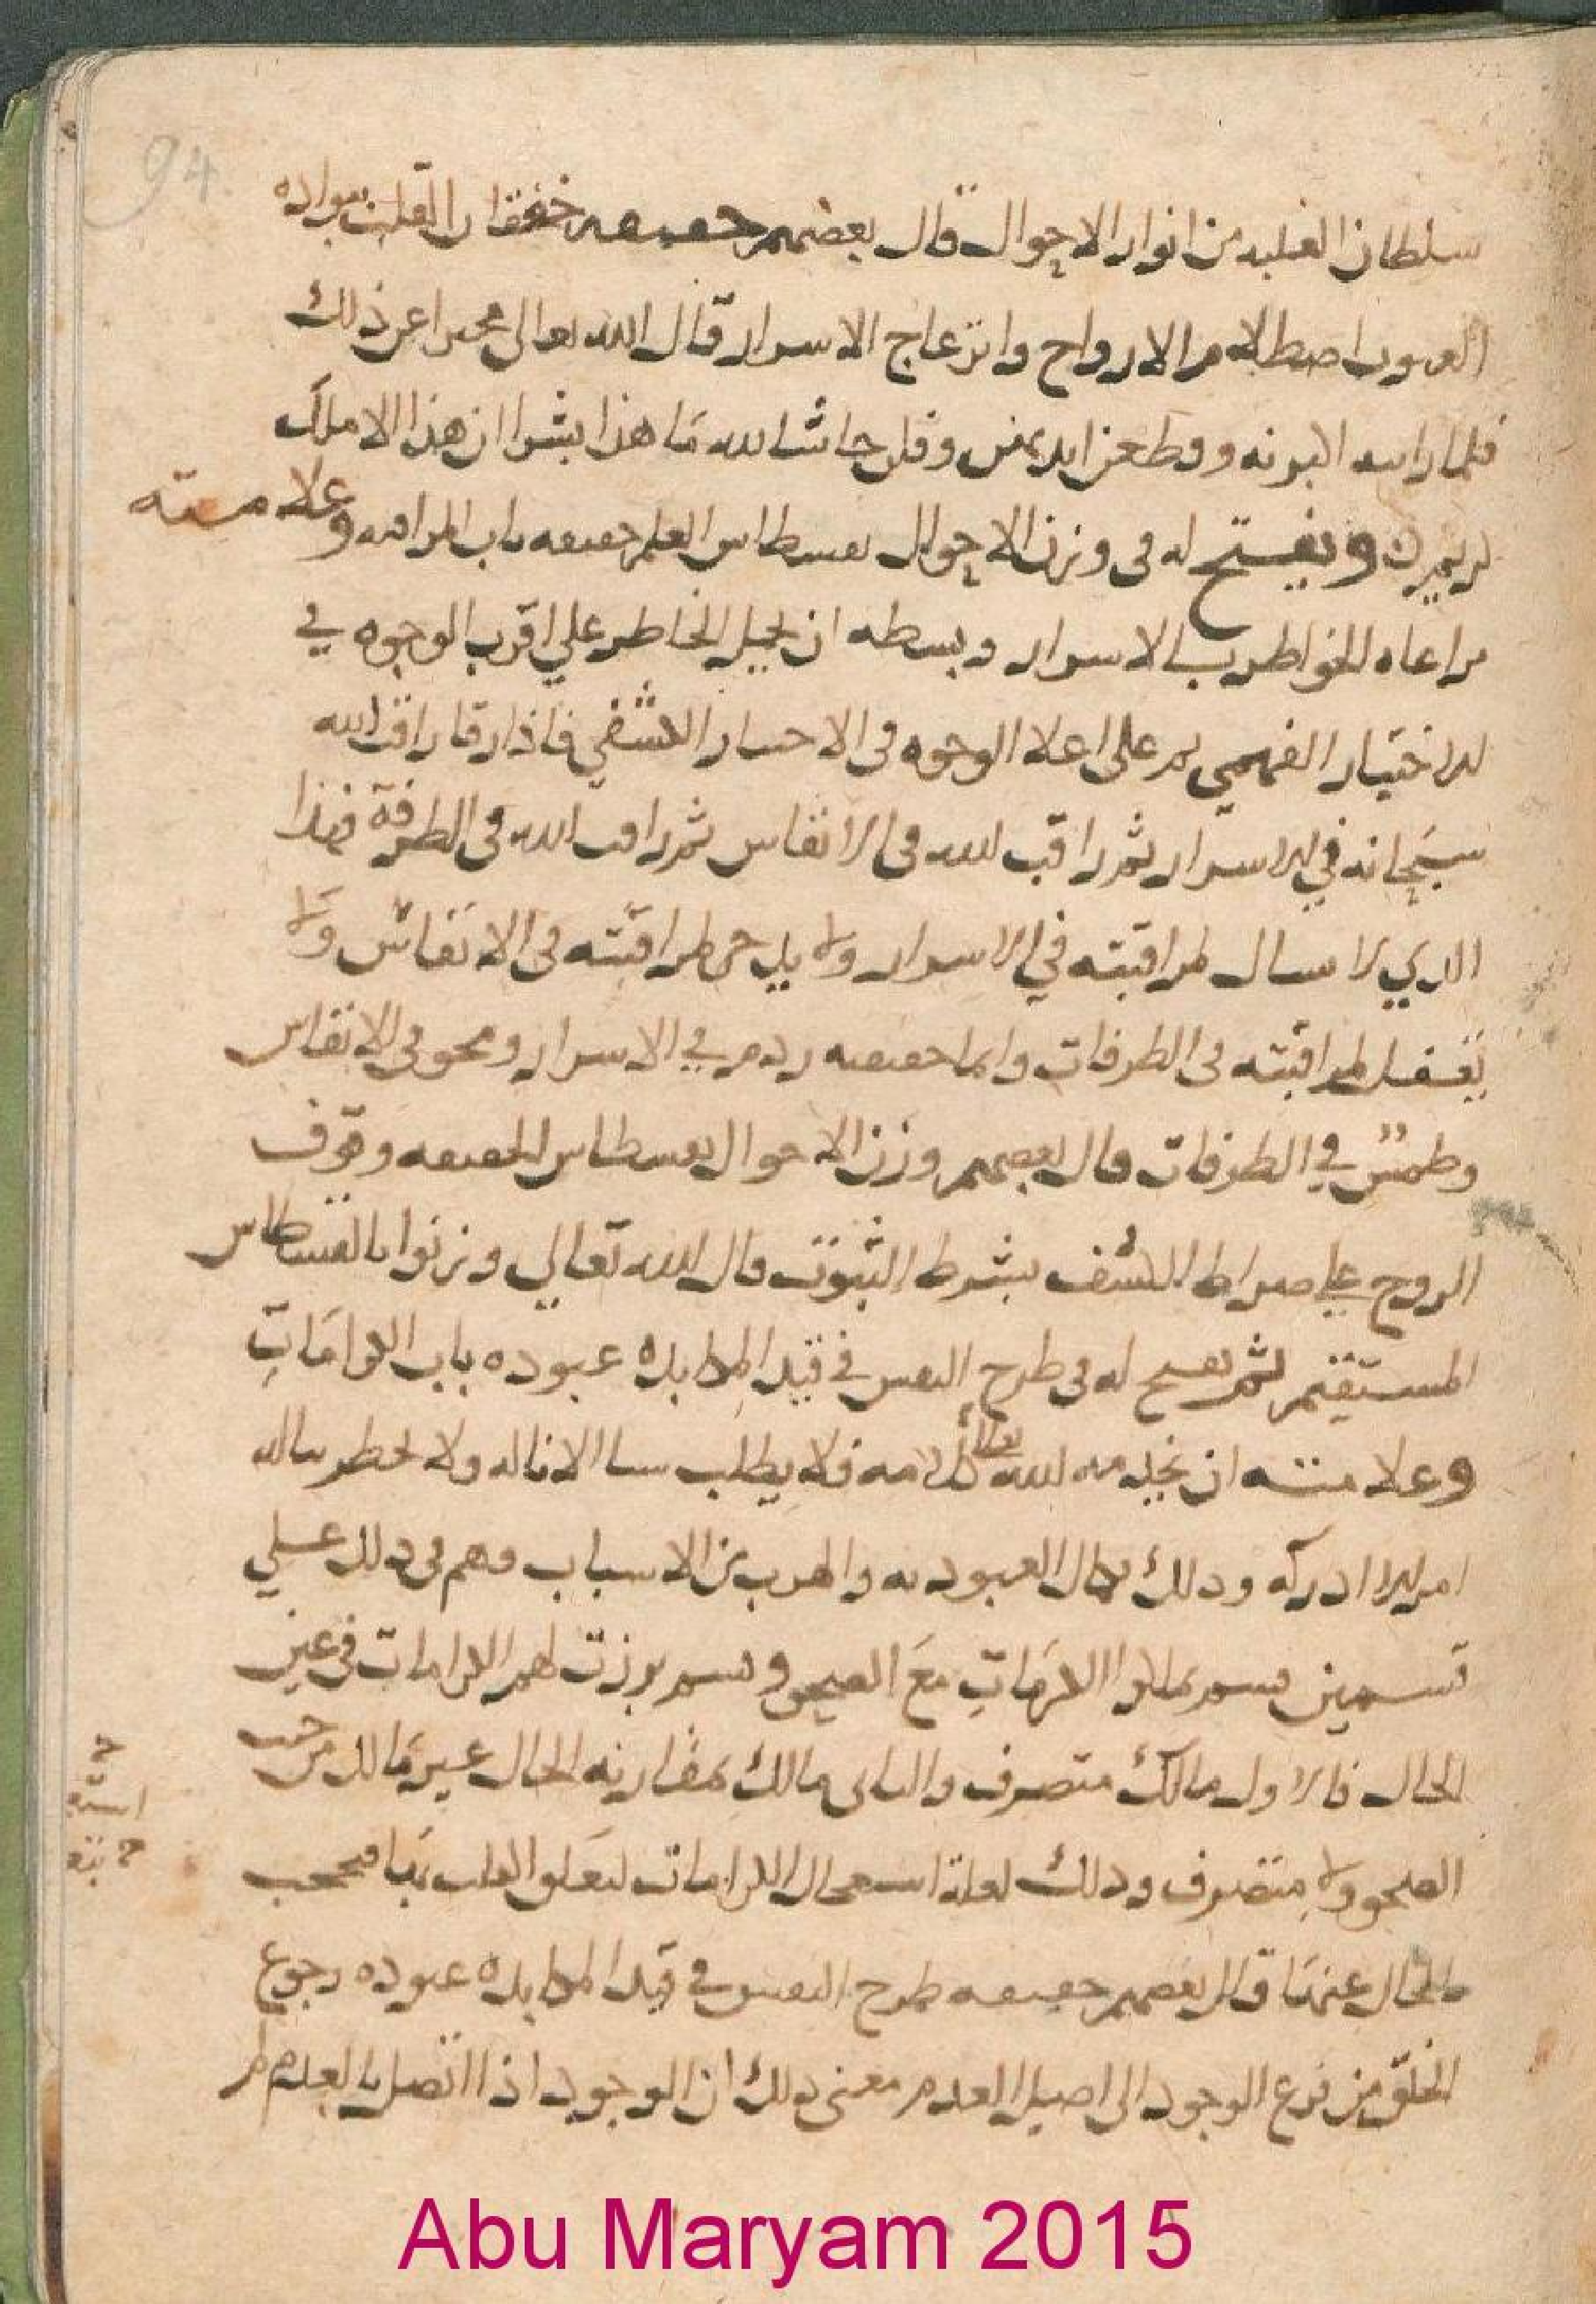 94
سلطان الغلبه من انوار الاحوال قال بعضهم حقيقه خفقان القلب بواده
اصطلام الارواح وانزعاج الاسرار قال الله تعالى مخبرا عن ذلك
فلما راينه اكبرنه وقطعن ايديهن وقلن حاشا لله ما هذا بشرا ان هذا الا ملك
كريم ويفتح له فى وزن الاحوال بقسطاس العلم حقيقه باب المراقبه وعلامته
مراعاه الخواطر بالاسرار وبسطه ان يحيل الخاطر علي اقرب الوجوه في
الاختيار الفهمي ثم على اعلا الوجوه فى الاختبار الكشفي فاذا رقا راقب الله
سبحانه في الاسرار ثم راقب الله فى الانفاس ثم راقب الله فى الطرفة فهذا
الدي لا لمراقبته في الاسرار ولا لمراقبته فى الانفاس ولا
يغفل لمراقبته فى الطرفات وانما حقيقته ردم في الاسرار ومحو فى الانفاس
وطمس في الطرفات قال بعضهم وزن الاحوال بقسطاس الحقيقه وقوف
الروح على صراط الكشف بشرط الثبوت قال الله تعالي وزنوا بالقسطاس
المستقيم ثم يفتح له فى طرح النفس في قيد المكابده عبوده باب الكرامات
وعلامته ان الله تعالى كرامه فلا يطلب سيا الا ناله ولا يخطر بباله
امر الا ادركه ودلك بكمال العبوديه والهرب من الاسباب وهم فى دلك علي
قسمين قسم ملكوا الكرمات مع الصحو وقسم برزت لهم الكرامات في عين
الحال فالاول مالك متصرف والثانى مالك بمقارنه الحال غير مالك من حيث
الصحو ولا متصرف ودلك لعلة استعمال الكرامات لتعلق القلب بها فيحجب
بالحال عنها قال بعضهم حقيقه طرح النفس في قيد المكابده عبوده رجوع
الخلق من فرع الوجود الى اصل العدم معنى دلك ان الوجود اذا اتصل بالعدم
Abu Maryam 2015